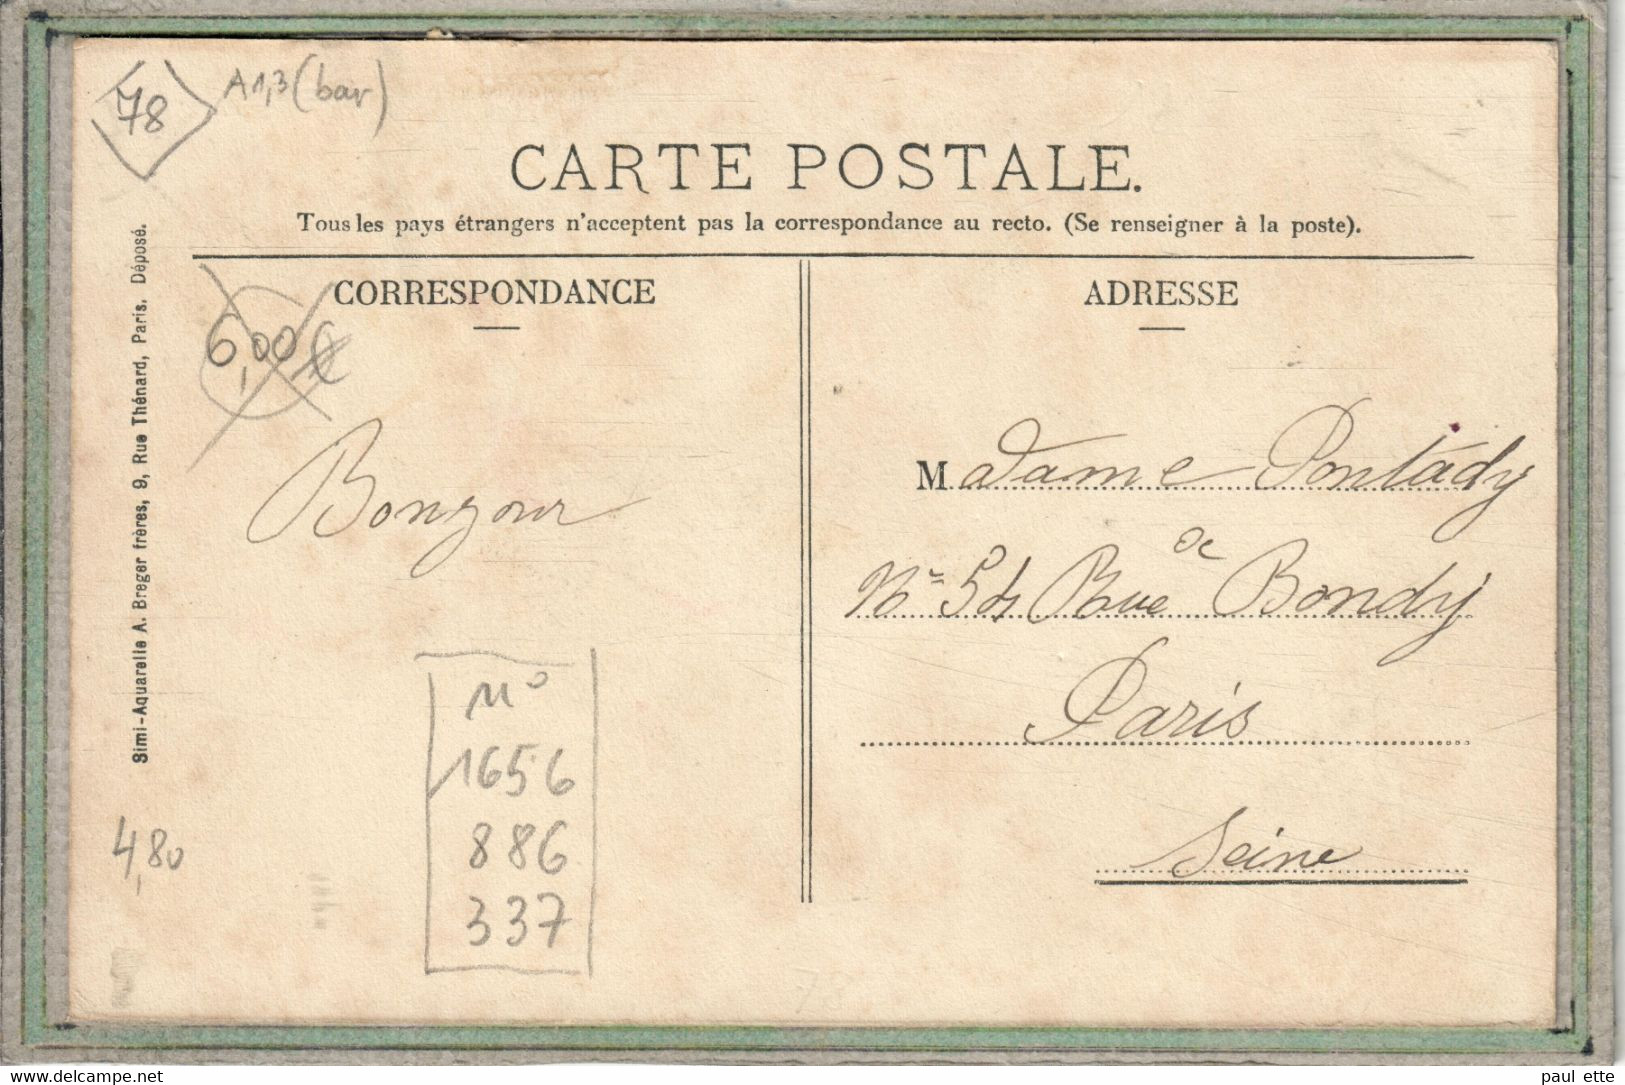 78
A1,3 (bar)
CARTE POSTALE.
Tous les pays étrangers n'acceptent pas la correspondance au recto. (Se renseigner à la poste).
CORRESPONDANCE
ADRESSE
6,00 €
Simi-Aquarelle A. Breger frères, 9, Rue Thénard, Paris. Déposé.
Bonjour
Madame Pontády
Nº 54 Rue de Bondy
Paris
Seine
Nº
1656
886
337
4,80
www.delcampe.net
paul ette